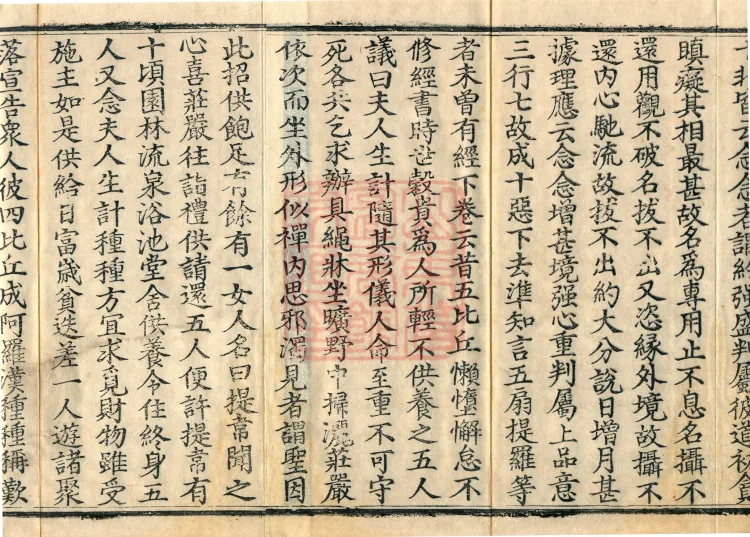 十非皆云念念者謂約强盛判屬彼道初貪
瞋癡其相最甚故名爲專用止不息名攝不
還用觀不破名拔不出又恣緣外境故攝不
還内心馳流故拔不出約大分說日增月甚
據理應云念念增甚境强心重判屬上品意
三行七故成十惡下去準知言五扇提羅等
者未曾有經下卷云昔五比丘懶憜懈怠不
修經書時世穀貴爲人所輕不供養之五人
議曰夫人生計隨其形儀人命至重不可守
死各共乞求辦具繩牀坐曠野中掃灑莊嚴
依次而坐外形似禪内思邪濁見者謂聖因
此招供飽足有餘有一女人名曰提韋聞之
心喜莊嚴往詣禮供請還五人便許提韋有
十頃園林流泉浴池堂舍供養令住終身五
人又念夫人生計種種方宜求覓財物雖受
施主如是供給日富歲貧迭差一人遊諸聚
落宣告衆人彼四比丘成阿羅漢種種稱歎